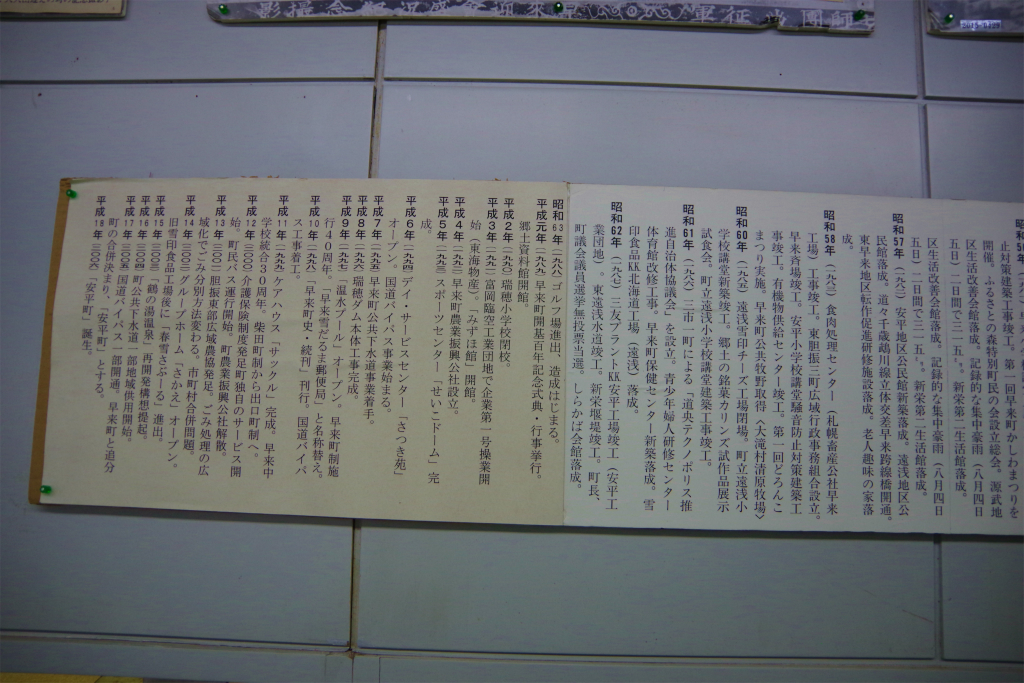 止対策建築工事竣工。第一回早来町かしわまつりを
開催。ふるさとの森特別町民の会設立総会。源武地
区生活改善会館落成。記録的な集中豪雨（八月四日
五日）二日間で三一五㍉。新栄第二生活館落成。
区生活改善会館落成。記録的な集中豪雨（八月四日
五日）二日間で三一五㍉。新栄第二生活館落成。
昭和57年（一九八二）安平地区公民館新築落成。遠浅地区公
民館落成。道々千歳鵡川線立体交差早来跨線橋開通。
東早来地区転作促進研修施設落成。老人趣味の家落
成。
昭和58年（一九八三）食肉処理センター（札幌畜産公社早来
工場）工事竣工。東胆振三町広域行政事務組合設立。
早来斉場竣工。安平小学校講堂騒音防止対策建築工
事竣工。有機物供給センター竣工。第一回どろんこ
まつり実施。早来町公共牧野取得〈大滝村清原牧場〉
昭和60年（一九八五）遠浅雪印チーズ工場閉場。町立遠浅小
学校講堂新築竣工。郷土の銘菓カリンズ試作品展示
試食会。町立遠浅小百校講堂建築工事竣工。
昭和61年（一九八六）三市一町による「道央テクノポリス推
進自治体協議会」を設立。青少年婦人研修センター
体育館改修工事。早来町保健センター新築落成。雪
印食品KK北海道工場（遠浅）落成。
昭和62年（一九八七）三友プラントKK安平工場竣工（安平工
業団地）。東遠浅水道竣工。新栄堰堤竣工。町長、
町議会議員選挙無投票当選。しらかば会館落成。
昭和63年（一九八八）ゴルフ場進出、造成はじまる。
平成元年（一九八九）早来町開基百年記念式典・行事挙行。
郷土資料館開館。
平成2年（一九九〇）瑞穂小学校閉校。
平成3年（一九九一）富岡臨空工業団地で企業第一号操業開
始（東海物産）。「みずほ館」開館。
平成4年（一九九二）早来町農業振興公社設立。
平成5年（一九九三）スポーツセンター「せいこドーム」完
成。
平成6年（一九九四）デイ・サービスセンター「さつき苑」
オープン。国道バイパス事業始まる。
平成7年（一九九五）早来町公共下水道事業着手。
平成8年（一九九六）瑞穂ダム本体工事完成。
平成9年（一九九七）「温水プール」オープン。早来町制施
行40周年。「早来雪だるま郵便局」と名称替え。
平成10年（一九九八）「早来町史・続刊」刊行。国道バイパ
ス工事着工。
平成11年（一九九九）ケアハウス「サックル」完成。早来中
学校統合30周年。柴田町制から出口町制へ。
平成12年（二〇〇〇）介護保険制度発足町独自のサービス開
始。町民バス運行開始。町農業振興公社解散。
平成13年（二〇〇一）胆振東部広域農協発足。ごみ処理の広
域化でごみ分別方法変わる。市町村合併問題。
平成14年（二〇〇二）グループホーム「さかえ」オープン。
旧雪印食品工場後に「春雪さぶーる」進出。
平成15年（二〇〇三）「鶴の湯温泉」再開発構想提起。
平成16年（二〇〇四）町公共下水道一部地域供用開始。
平成17年（二〇〇五）国道バイパス一部開通。早来町と追分
町の合併決まり、「安平町」とする。
平成18年（二〇〇六）「安平町」誕生。